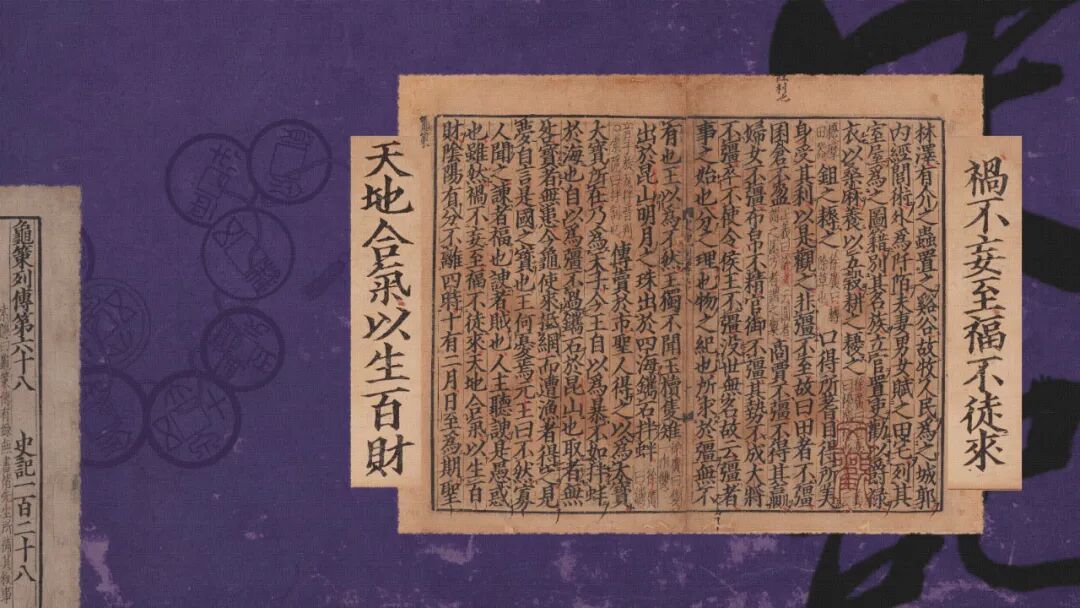 禍不妄至福不徒來
林澤有介之蟲置之谿谷故牧人民為之城郭
內經閭術外為阡陌夫妻男女賦之田宅列其
室屋為之圖籍別其名族立官置吏勸以爵祿
衣以桑麻養以五穀耕之耰之
鉏之耨之 口得所嗜目得所美
身受其利以是觀之非彊不至故曰田者不彊
囷倉不盈 商賈不彊不得其贏
婦女不彊布帛不精官御不彊其勢不成大將
不彊卒不使令侯王不彊沒世無名故云彊者
事之始也分之理也物之紀也所求於彊無不
有也王以為不然王獨不聞玉櫝隻雉
出於昆山明月之珠出於四海鐫石拌蚌
傳賣於市聖人得之以為大寶
大寶所在乃為天子今王自以為暴不如拌蚌
於海也自以為彊不過鐫石於昆山也取者無
咎寶者無患今龜使來抵網而遭漁者得之見
夢自言是國之寶也王何憂焉元王曰不然寡
人聞之諫者福也諛者賊也人主聽諛是愚惑
也雖然禍不妄至福不徒來天地合氣以生百
財陰陽有分不離四時十有二月日至為期聖
天地合氣以生百財
龜策列傳第六十八 史記一百二十八